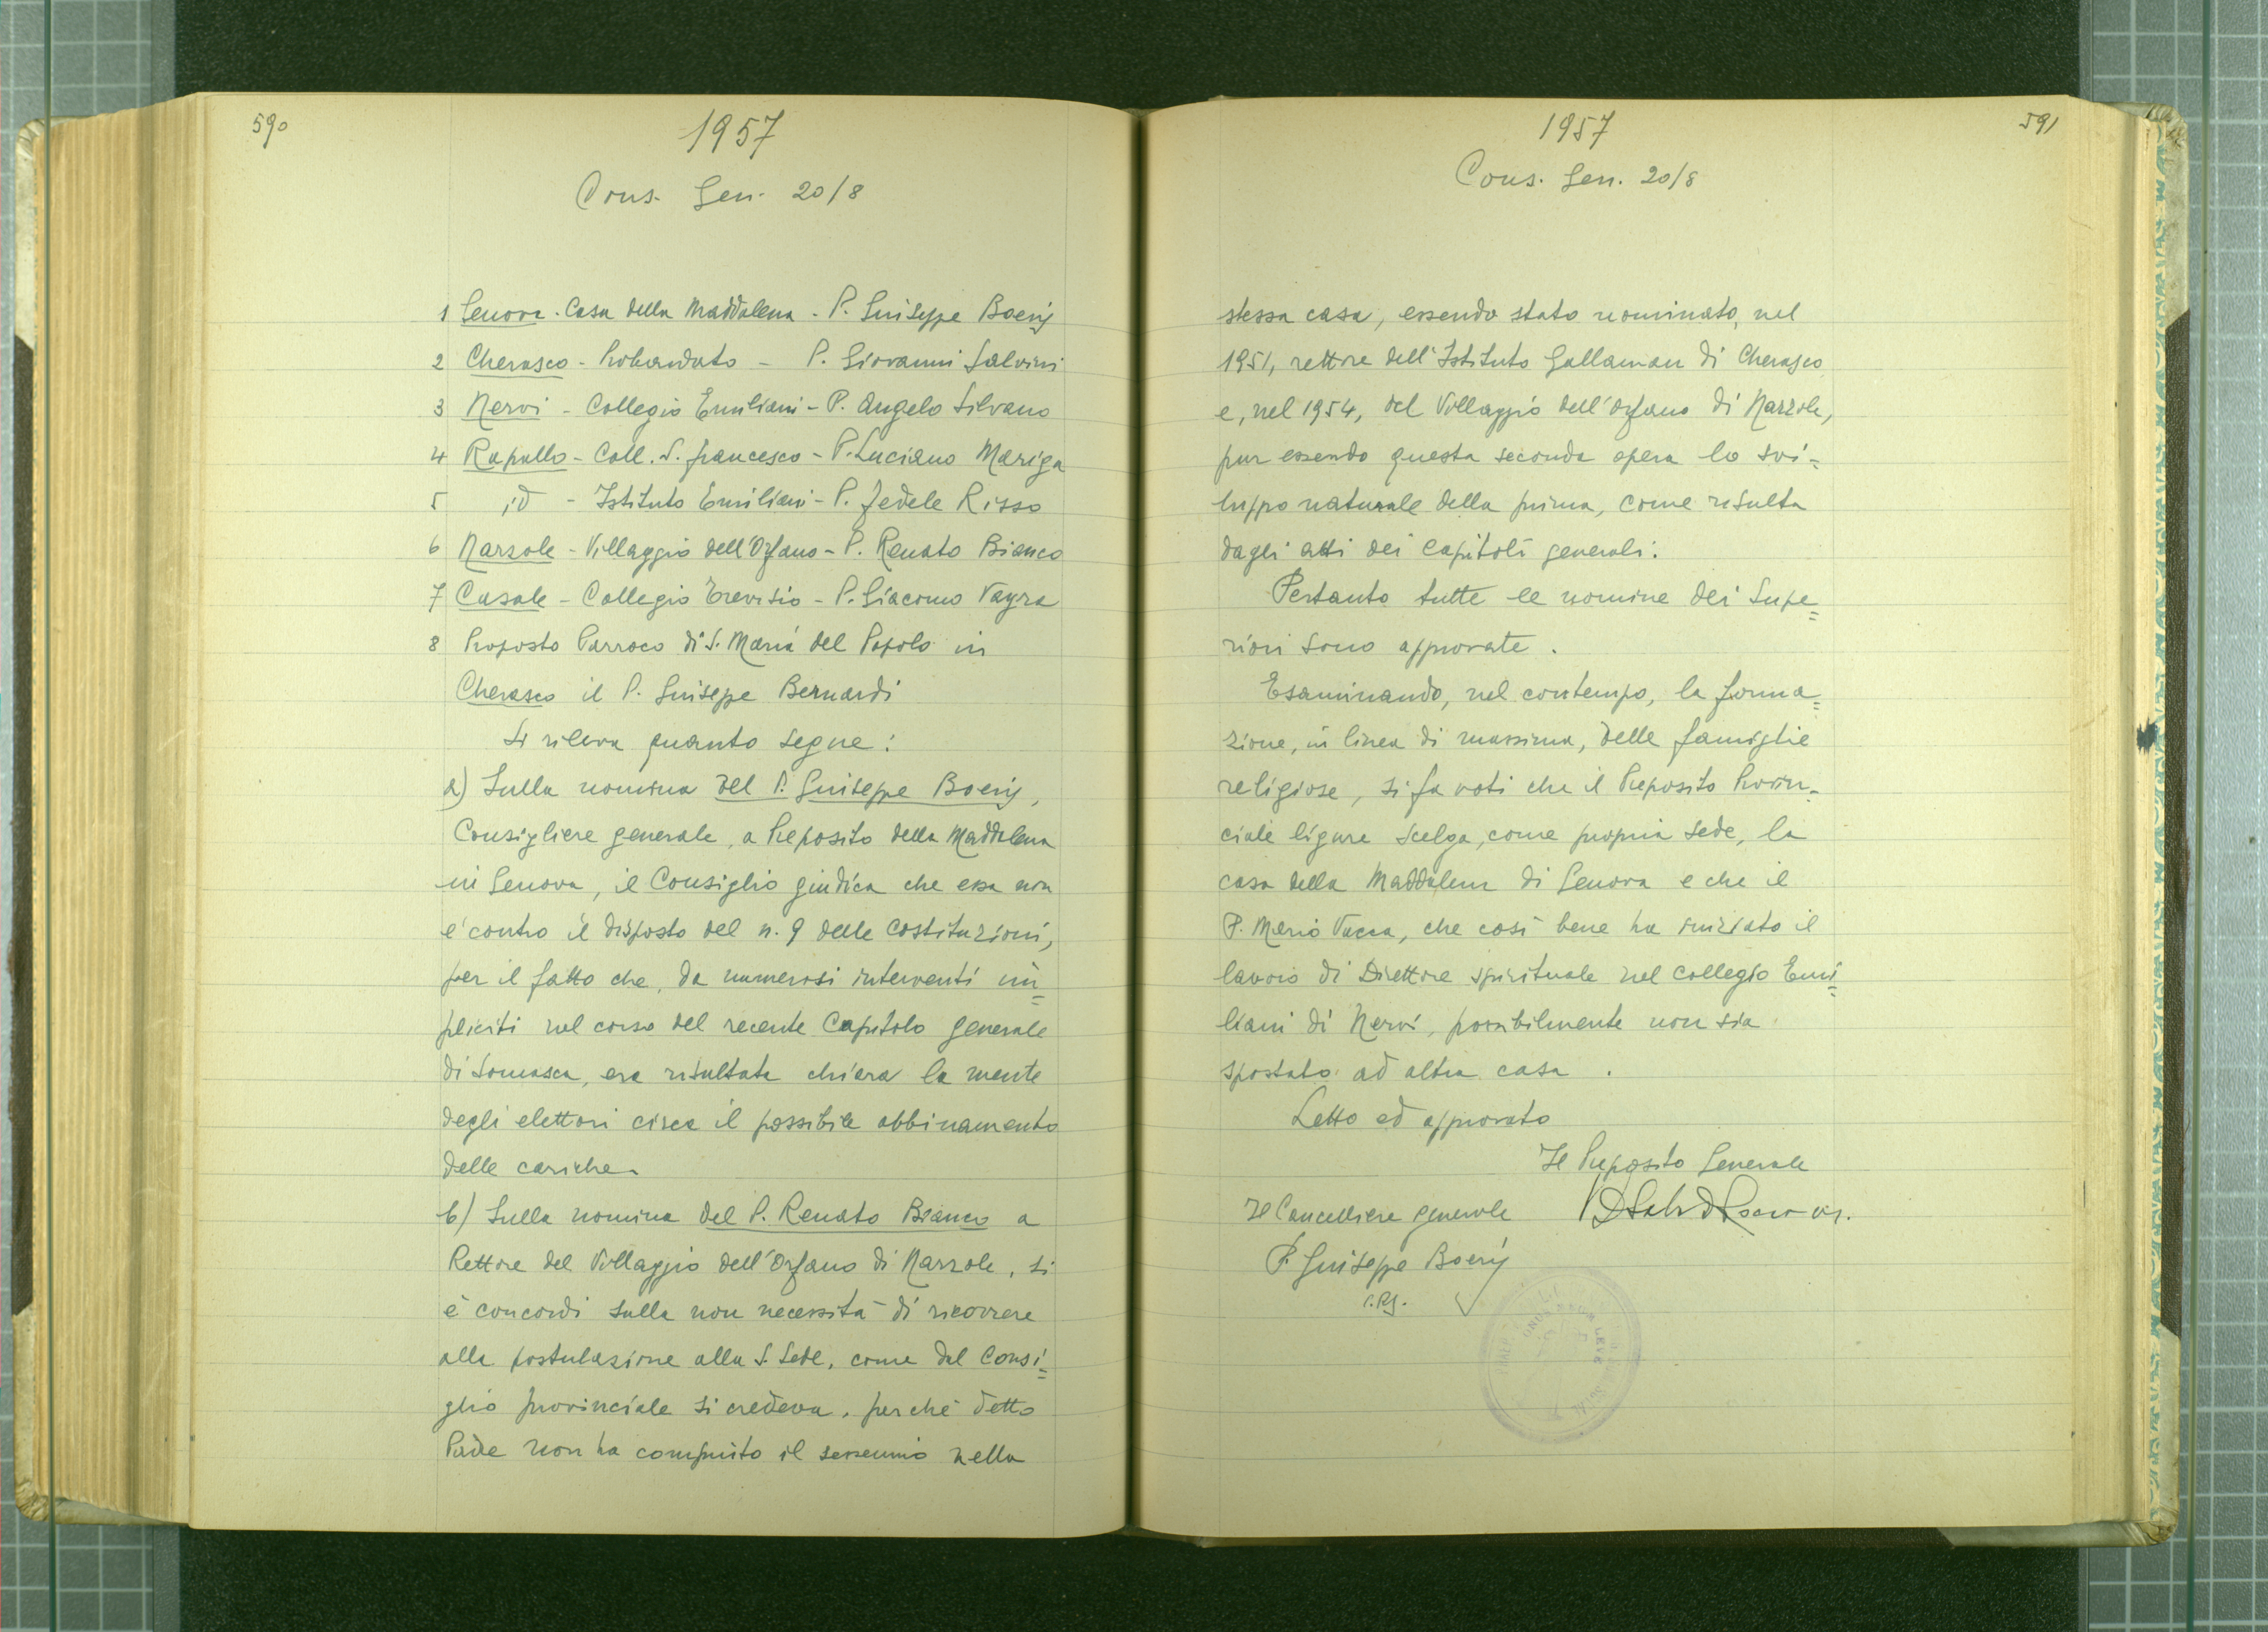 590
1957
Cons. Gen. 20/8
1 Genova - Casa della Maddalena - P. Giuseppe Boeris
2 Cherasco - Probandato - P. Giovanni Salvini
3 Nervi - Collegio Emiliani - P. Angelo Silvano
4 Rapallo - Coll. S. Francesco - P. Luciano Mariga
5 id - Istituto Emiliani - P. Fedele Risso
6 Narzole - Villaggio dell'Orfano - P. Renato Bianco
7 Casale - Collegio Trevisio - P. Giacomo Vayra
8 Proposto Parroco di S. Maria del Popolo in
Cherasco il P. Giuseppe Bernardi
Si rileva quanto segue:
a) Sulla nomina del P. Giuseppe Boeris,
Consigliere generale, a Preposito della Maddalena
in Genova, il Consiglio giudica che essa non
è contro il disposto del n. 9 delle Costituzioni,
per il fatto che, da numerosi interventi im=
pliciti nel corso del recente Capitolo generale
di Somasca, era risultata chiara la mente
degli elettori circa il possibile abbinamento
delle cariche.
b) Sulla nomina del P. Renato Bianco a
Rettore del Villaggio dell'Orfano di Narzole, si
è concordi sulla non necessità di ricorrere
alla postulazione alla S. Sede, come dal Consi=
glio provinciale si credeva, perchè detto
Padre non ha compiuto il sessennio nella
591
1957
Cons. Gen. 20/8
stessa casa, essendo stato nominato, nel
1951, rettore dell'Istituto Gallaman di Cherasco
e, nel 1954, del Villaggio dell'Orfano di Narzole,
pur essendo questa seconda opera lo svi=
luppo naturale della prima, come risulta
dagli atti dei Capitoli generali.
Pertanto tutte le nomine dei Supe=
riori sono approvate.
Esaminando, nel contempo, la forma=
zione, in linea di massima, delle famiglie
religiose, si fa voti che il Preposito Provin=
ciale ligure scelga, come propria sede, la
casa della Maddalena di Genova e che il
P. Mario Vacca, che così bene ha iniziato il
lavoro di Direttore spirituale nel Collegio Emi=
liani di Nervi, possibilmente non sia
spostato ad altra casa.
Letto ed approvato
Il Preposito Generale
Il Cancelliere generale
P. Giuseppe Boeris
c.R.S.